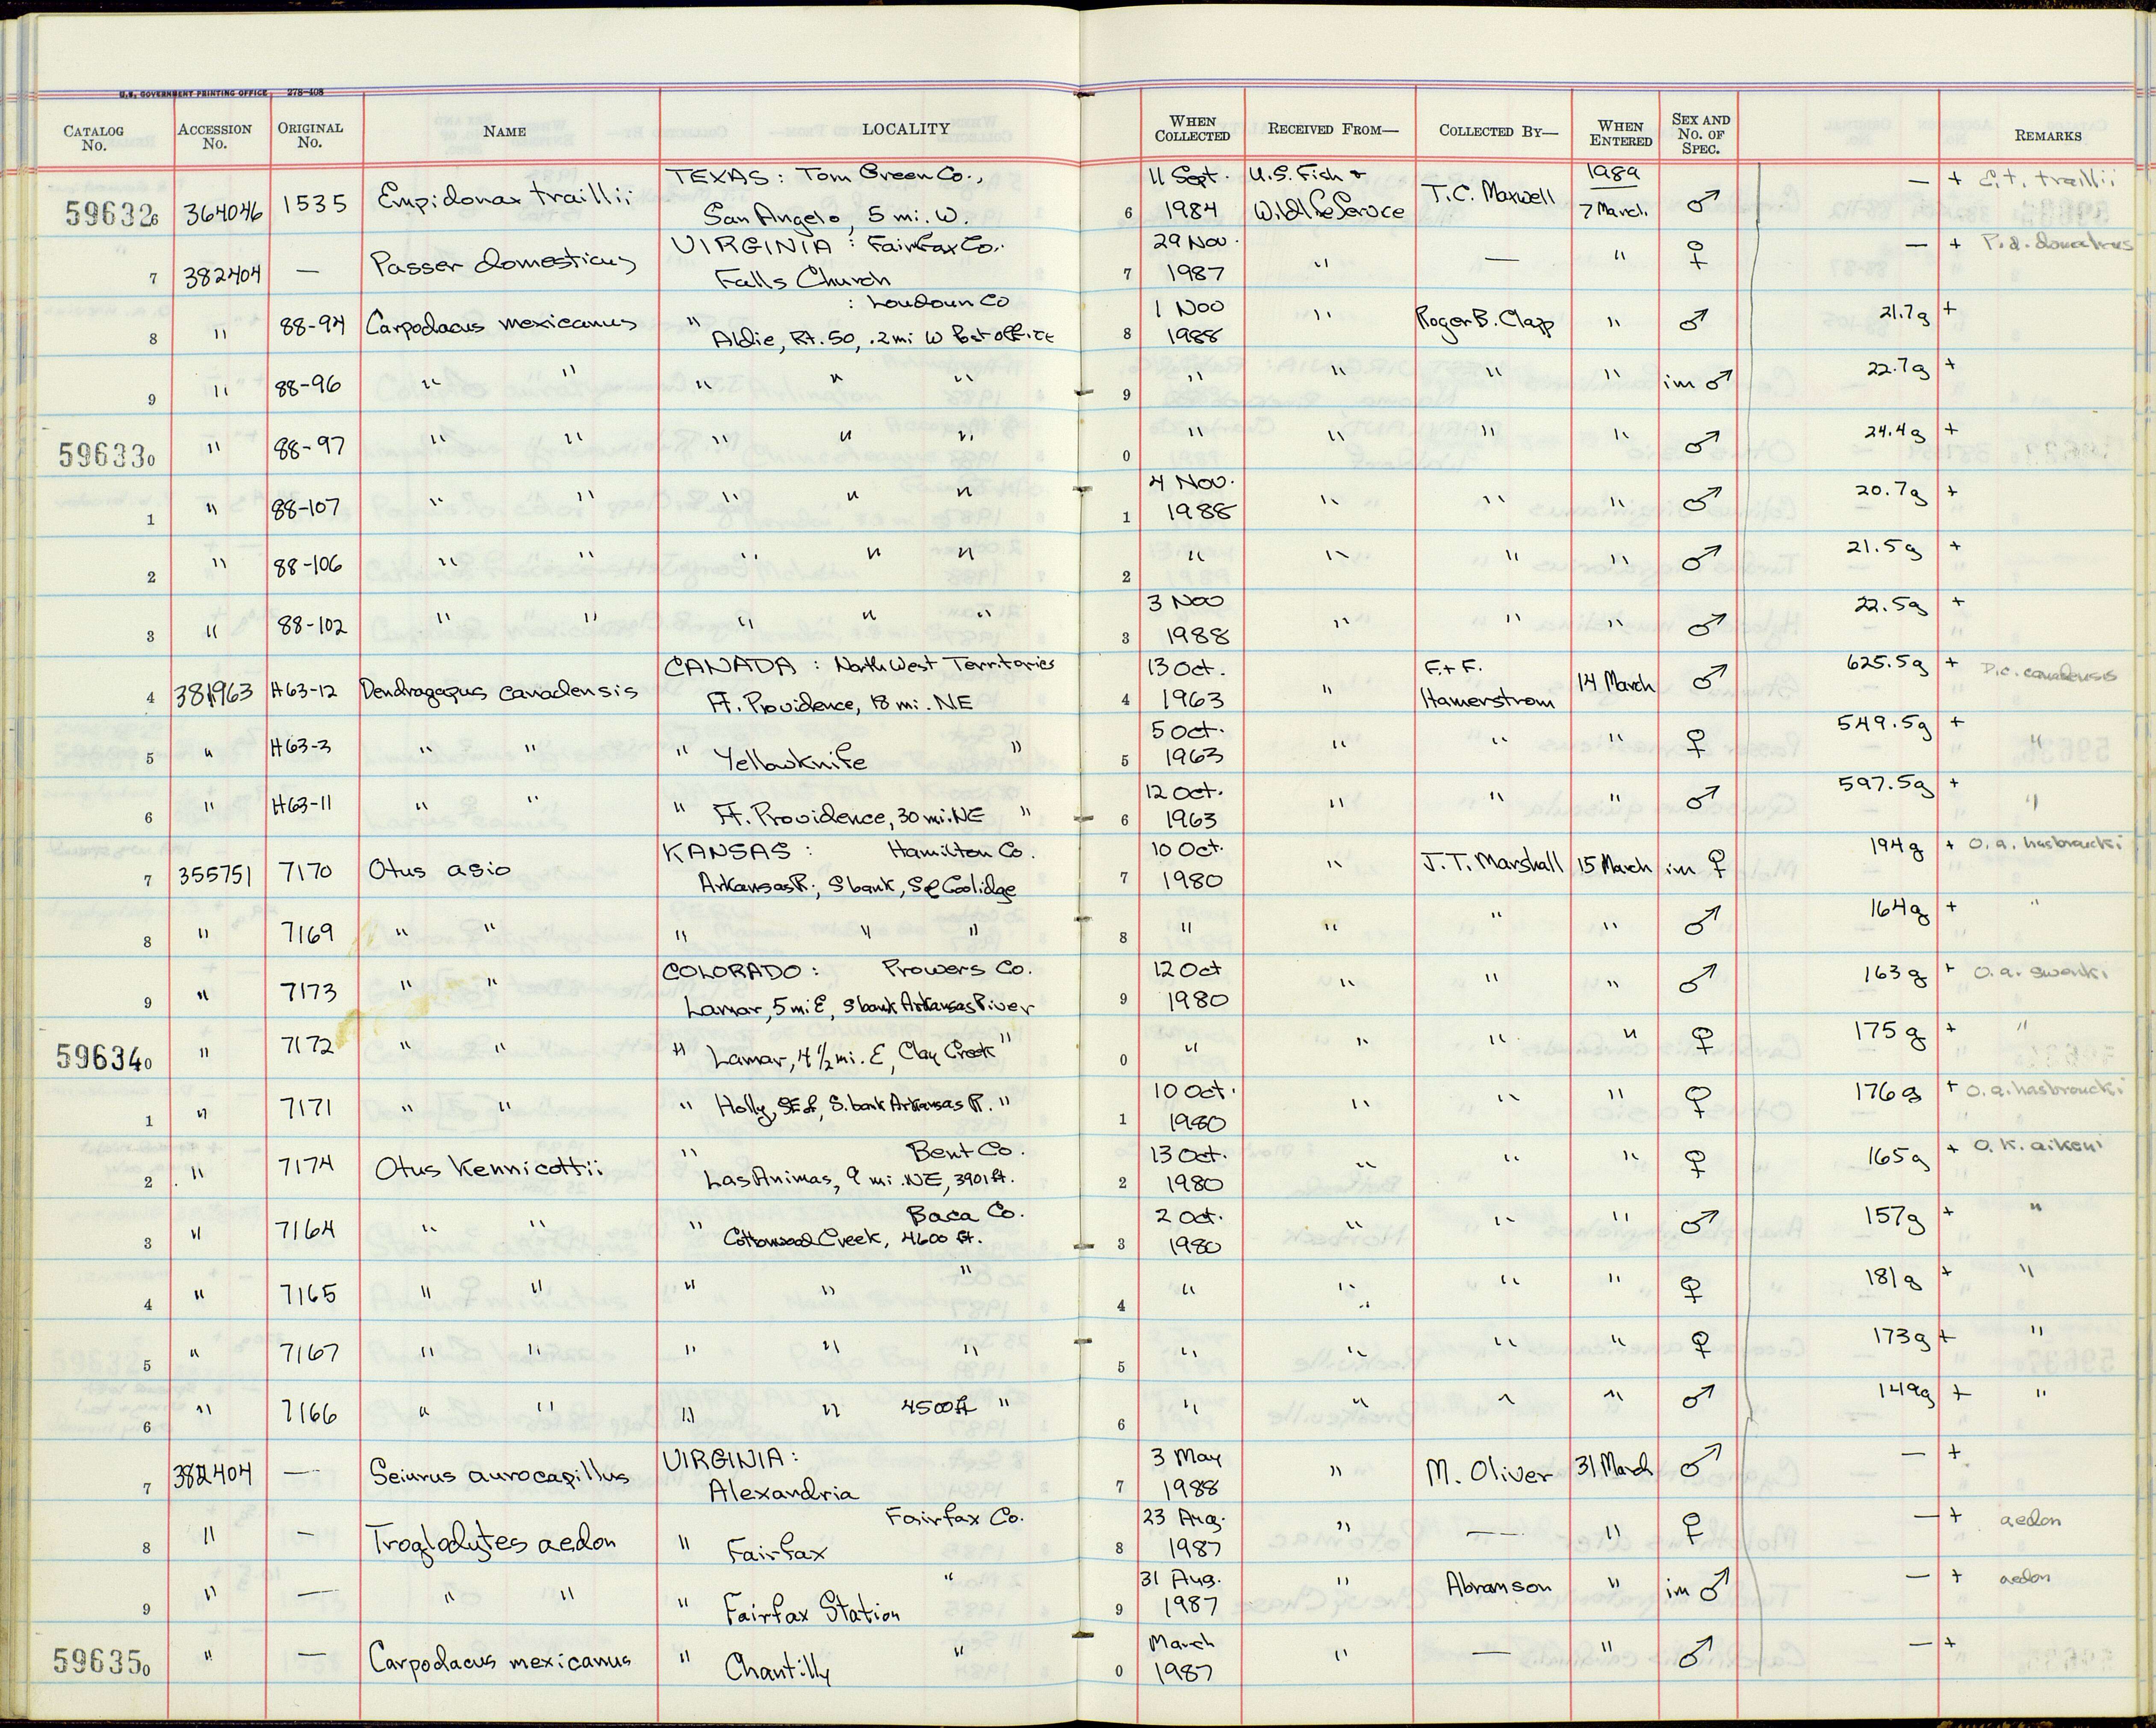 U.S. GOVERNMENT PRINTING OFFICE 278-408
CATALOG No. ACCESSION No. ORIGINAL No. NAME LOCALITY WHEN COLLECTED RECEIVED FROM— COLLECTED BY— WHEN ENTERED SEX AND No. OF SPEC. REMARKS
596326 364046 1535 Empidonax traillii TEXAS: Tom Green Co., San Angelo, 5 mi. W. 6 11 Sept. 1984 U.S. Fish + Wildlife Service T.C. Maxwell 1989 7 March. ♂ — + E.t. traillii
7 382404 — Passer domesticus VIRGINIA: Fairfax Co. Falls Church 7 29 Nov. 1987 " — " ♀ — + P.d. domesticus
8 " 88-94 Carpodacus mexicanus " : Loudoun Co Aldie, Rt. 50, .2 mi W Post office 8 1 Nov 1988 " Roger B. Clapp " ♂ 21.7g +
9 " 88-96 " " " " " 9 " " " " im ♂ 22.7g +
596330 " 88-97 " " " " " 0 " " " " ♂ 24.4g +
1 " 88-107 " " " " " 1 4 Nov. 1988 " " " ♂ 20.7g +
2 " 88-106 " " " " " 2 " " " " ♂ 21.5g +
3 " 88-102 " " " " " 3 3 Nov 1988 " " " ♂ 22.5g +
4 381963 H63-12 Dendragapus canadensis CANADA: North West Territories Ft. Providence, 18 mi. NE 4 13 Oct. 1963 " F. + F. Hamerstrom 14 March ♂ 625.5g + D.c. canadensis
5 " H63-3 " " " Yellowknife " 5 5 Oct. 1963 " " " ♀ 549.5g + "
6 " H63-11 " " " Ft. Providence, 30 mi. NE " 6 12 Oct. 1963 " " " ♂ 597.5g + "
7 355751 7170 Otus asio KANSAS: Hamilton Co. Arkansas R., S bank, S of Coolidge 7 10 Oct. 1980 " J.T. Marshall 15 March im ♀ 194g + O.a. hasbroucki
8 " 7169 " " " " " 8 " " " " ♂ 164g + "
9 " 7173 " " COLORADO: Prowers Co. Lamar, 5 mi E, S bank Arkansas River 9 12 Oct 1980 " " " ♂ 163g + O.a. swenki
596340 " 7172 " " " Lamar, 4 1/2 mi. E, Clay Creek " 0 " " " " ♀ 175g + "
1 " 7171 " " " Holly, SE of, S. bank Arkansas R. " 1 10 Oct. 1980 " " " ♀ 176g + O.a. hasbroucki
2 " 7174 Otus kennicottii " Bent Co. Las Animas, 9 mi. NE, 3901 ft. 2 13 Oct. 1980 " " " ♀ 165g + O.k. aikeni
3 " 7164 " " " Baca Co. Cottonwood Creek, 4600 ft. 3 2 Oct. 1980 " " " ♂ 157g + "
4 " 7165 " " " " " 4 " " " " ♀ 181g + "
5 " 7167 " " " " " 5 " " " " ♀ 173g + "
6 " 7166 " " " " 4500 ft " 6 " " " " ♂ 149g + "
7 382404 — Seiurus aurocapillus VIRGINIA: Alexandria 7 3 May 1988 " M. Oliver 31 March ♂ — +
8 " — Troglodytes aedon " Fairfax Co. Fairfax 8 23 Aug. 1987 " — " ♀ — + aedon
9 " — " " " Fairfax Station " 9 31 Aug. 1987 " Abramson " im ♂ — + aedon
596350 " — Carpodacus mexicanus " Chantilly " 0 March 1987 " — " ♂ — +